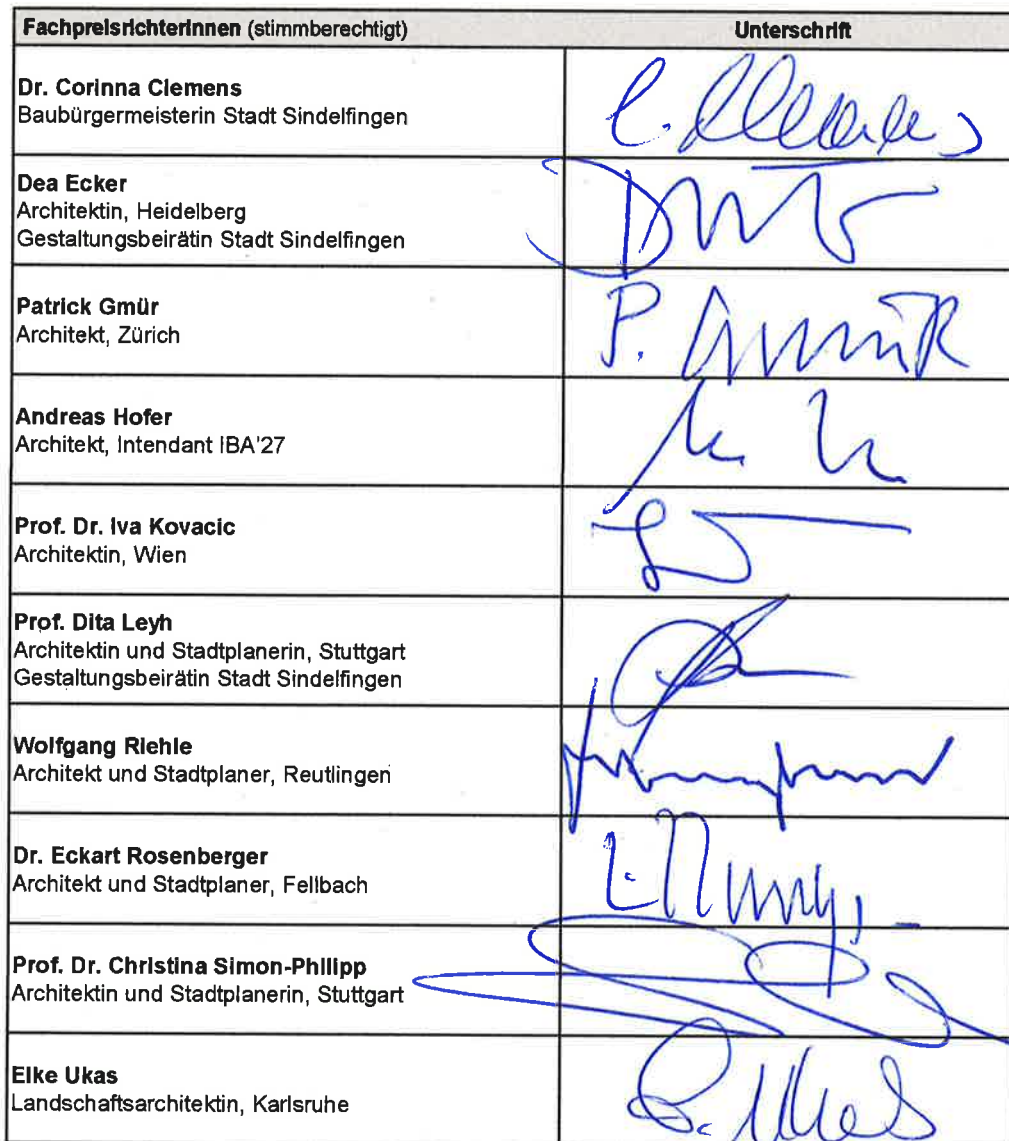 FachpreisrichterInnen (stimmberechtigt) Unterschrift
Dr. Corinna Clemens
Baubürgermeisterin Stadt Sindelfingen
Dea Ecker
Architektin, Heidelberg
Gestaltungsbeirätin Stadt Sindelfingen
Patrick Gmür
Architekt, Zürich
P. Gmür
Andreas Hofer
Architekt, Intendant IBA'27
Prof. Dr. Iva Kovacic
Architektin, Wien
Prof. Dita Leyh
Architektin und Stadtplanerin, Stuttgart
Gestaltungsbeirätin Stadt Sindelfingen
Wolfgang Riehle
Architekt und Stadtplaner, Reutlingen
Dr. Eckart Rosenberger
Architekt und Stadtplaner, Fellbach
Prof. Dr. Christina Simon-Philipp
Architektin und Stadtplanerin, Stuttgart
Elke Ukas
Landschaftsarchitektin, Karlsruhe